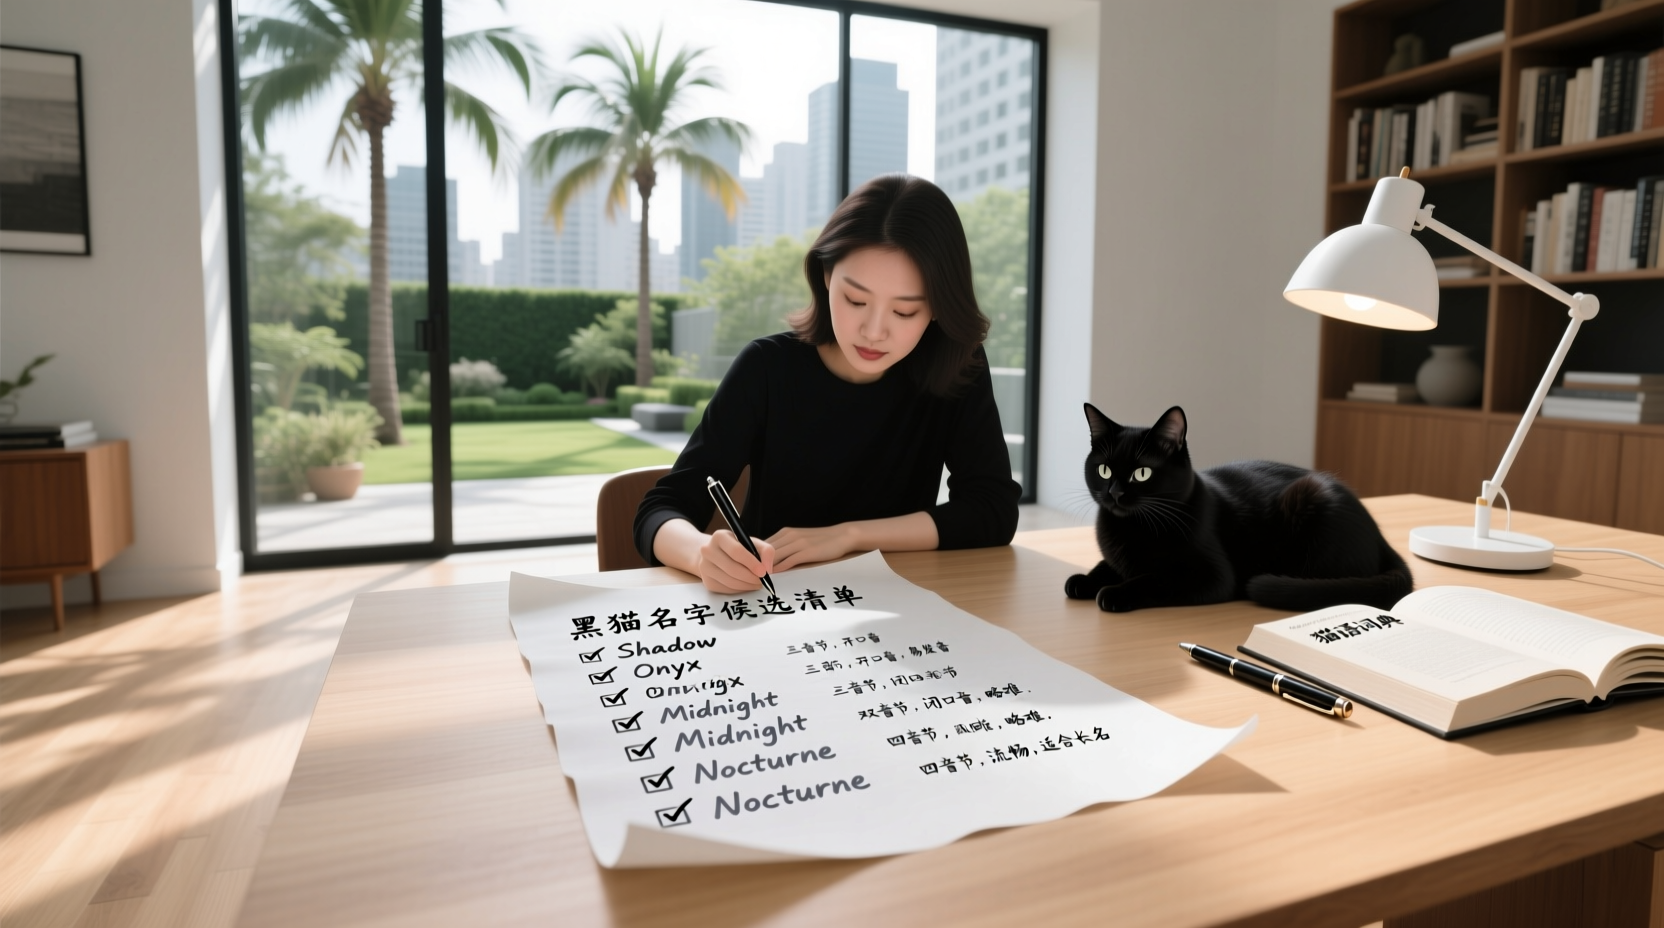 黑猫名字候选清单
Shadow 三音节，开口音
Onyx 三音节，开口音，易发音
三音节，闭口
Midnight 双音节，闭口音，略难.
Midnight 四音节，略难.
Nocturne 四音节，流畅，适合长名
Nocturne
猫语词典